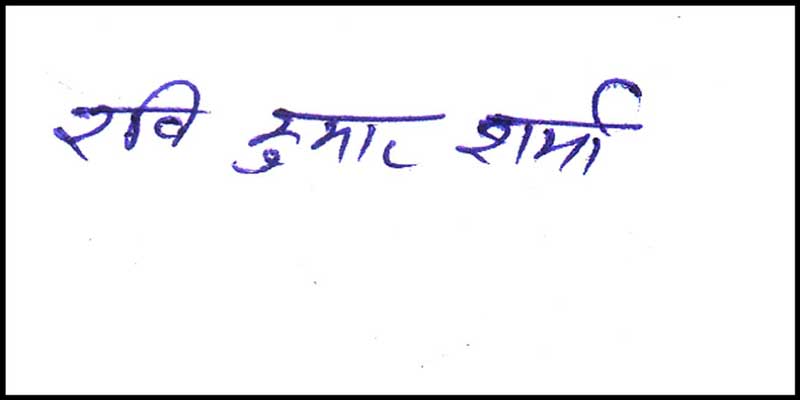 रवि कुमार शर्मा